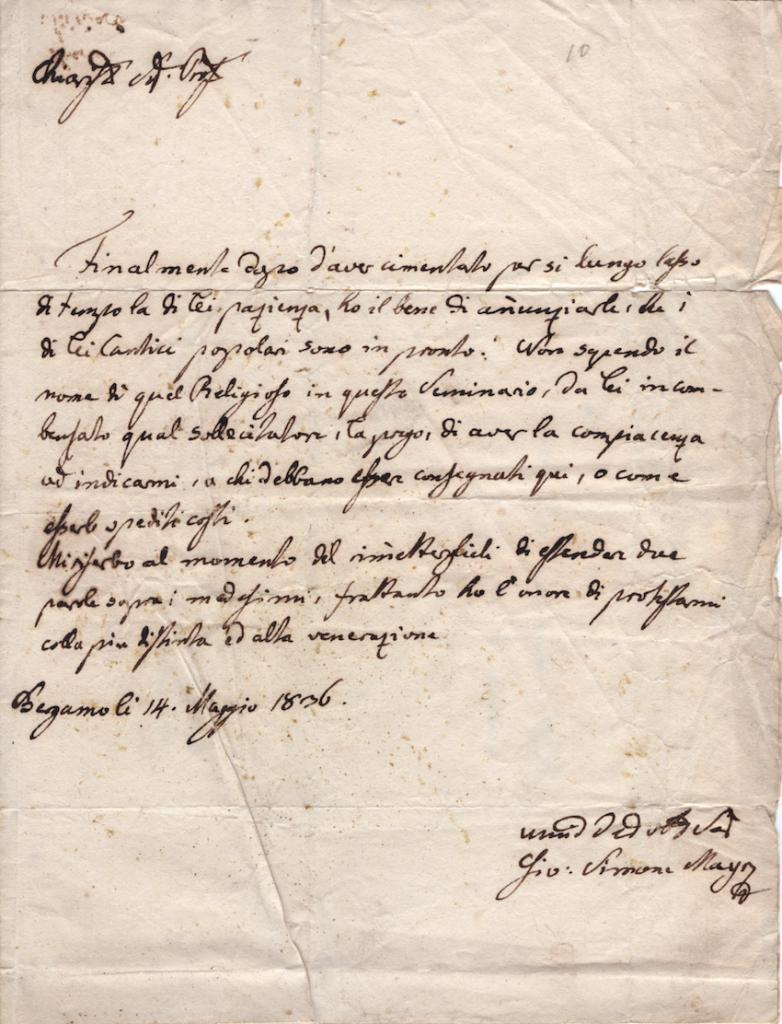 10
Chiariss Sigr. Prof
Finalmente dopo d'aver cimentato per si lungo lasso
di tempo la di Lei pazienza, ho il bene di añunziarle, che i
di Lei Cantici popolari sono in pronto. Non sapendo il
nome di quel Religioso in questo Seminario, da Lei incom-
benzato qual sollecitatore, la prego, di aver la compiacenza
ad indicarmi, a chi debbano esser consegnati qui, o come
esserle spediti costì.
Mi riserbo al momento del di estendere due
parole sopra i medesimi, frattanto ho l'onore di protestarmi
colla piu distinta ed alta venerazione
Bergamo li 14. Maggio 1836.
Gio: Simone Mayr